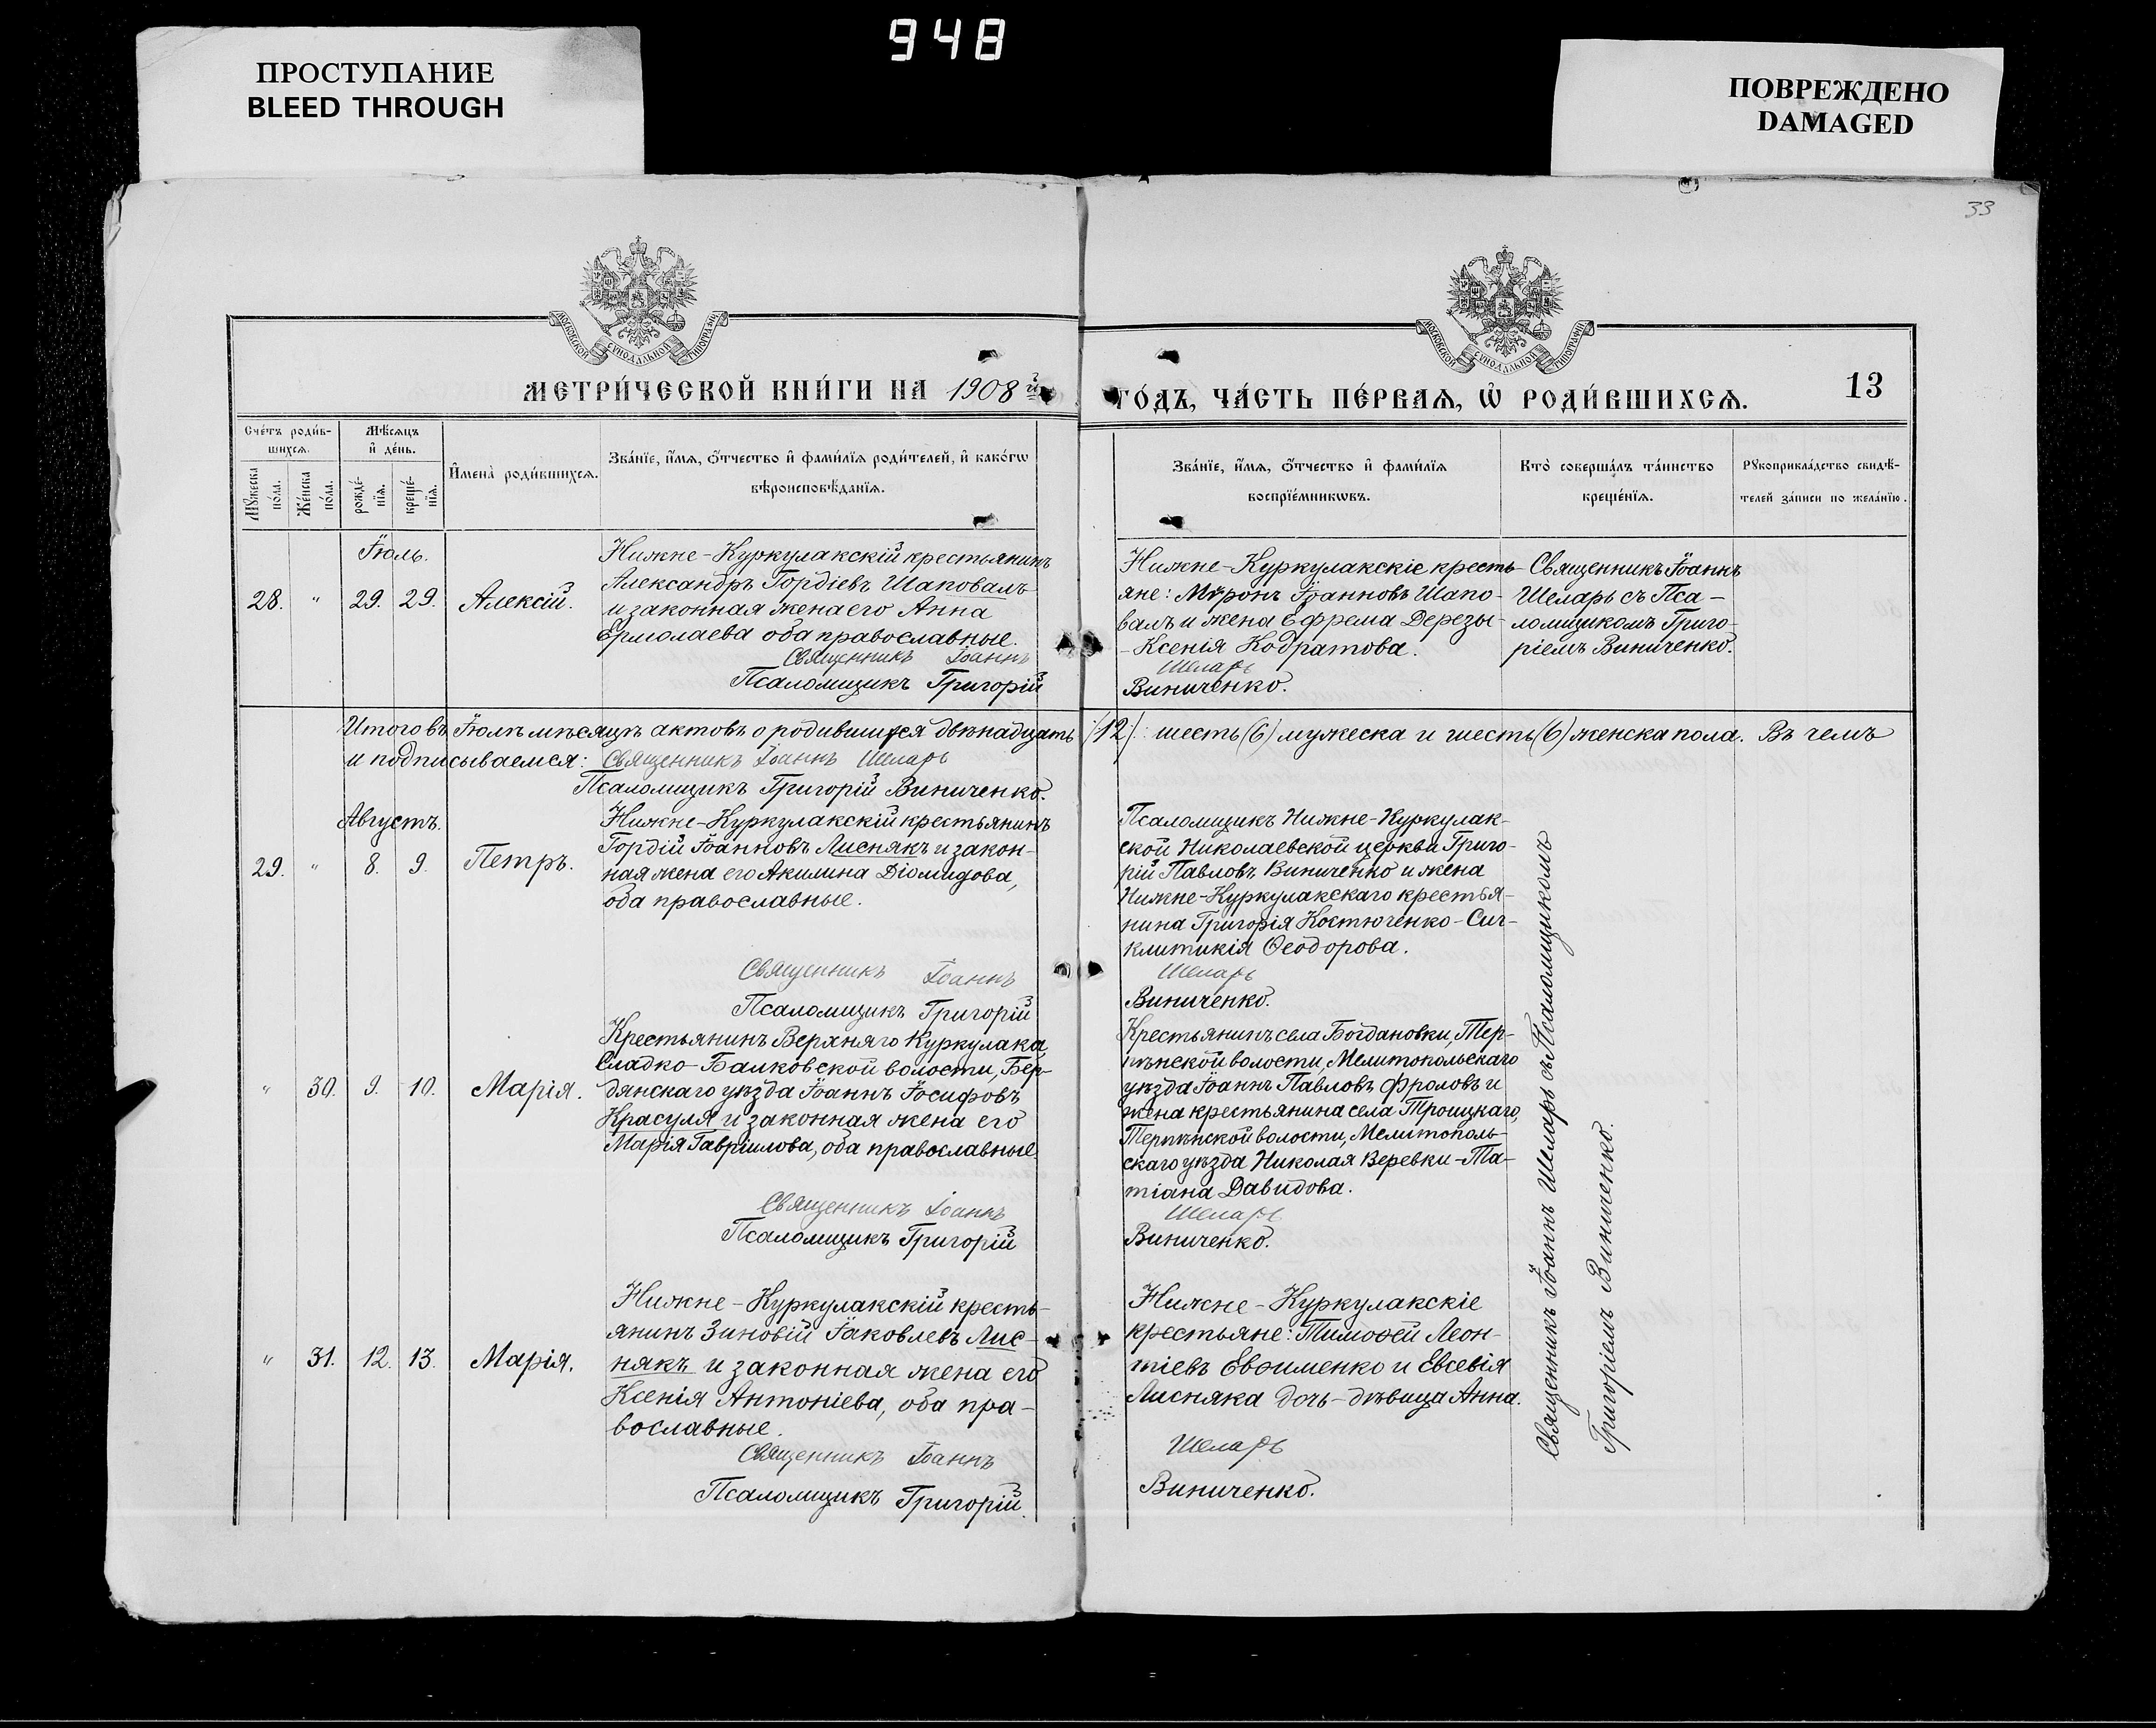 948
ПРОСТУПАНИЕ
BLEED THROUGH
ПОВРЕЖДЕНО
DAMAGED
33
МОСКОВСКОЙ СѴНОДАЛЬНОЙ ТИПОГРАФІИ
МОСКОВСКОЙ СѴНОДАЛЬНОЙ ТИПОГРАФІИ
МЕТРИ́ЧЕСКОЙ КНИ́ГИ НА 1908 й
ГО́ДЪ, ЧА́СТЬ ПЕ́РВАѦ, Ѡ҆ РОДИ́ВШИХСѦ.
13
Сче́тъ роди́в-
шихсѧ.
Мѣ́сѧцъ
и҆ де́нь.
Мꙋ́жеска
по́ла.
Же́нска
по́ла.
рожде́-
нїѧ.
креще́-
нїѧ.
И҆мена̀ роди́вшихсѧ.
Зва́нїе, и҆́мѧ, ѻ҆́тчество и҆ фами́лїѧ роди́телей, и҆ како́гѡ
вѣроисповѣ́данїѧ.
Зва́нїе, и҆́мѧ, ѻ҆́тчество и҆ фами́лїѧ
воспрїе́мникѡвъ.
Кто̀ соверша́лъ та́инство
креще́нїѧ.
Рꙋкоприкла́дство свидѣ́-
телей за́писи по жела́нїю.
Іюль.
28. " 29. 29. Алексій.
Нижне-Куркулакскій крестьянинъ
Александръ Гордіевъ Шаповалъ
и законная жена его Анна
Ермолаева оба православные.
Священникъ Іоаннъ
Псаломщикъ Григорій
Нижне-Куркулакскіе кресть-
яне: Мѵронъ Іоанновъ Шапо-
валъ и жена Ефрема Дерезы-
-Ксенія Кодратова.
Шеларь
Виниченко.
Священникъ Іоаннъ
Шеларь съ Пса-
ломщикомъ Григо-
ріемъ Виниченко.
Итого въ Іюлѣ мѣсяцѣ актовъ о родившихся двѣнадцать /12/: шесть (6) мужеска и шесть (6) женска пола. Въ чемъ
и подписываемся: Священникъ Іоаннъ Шеларь
Псаломщикъ Григорій Виниченко.
Августъ.
29. " 8. 9. Петръ.
Нижне-Куркулакскій крестьянинъ
Гордій Іоанновъ Лиснякъ и закон-
ная жена его Акилина Діомидова,
оба православные.
Священникъ Іоаннъ
Псаломщикъ Григорій
Псаломщикъ Нижне-Куркулак-
ской Николаевской церкви Григо-
рій Павловъ Виниченко и жена
Нижне-Куркулакскаго крестья-
нина Григорія Костюченко-Син-
клитикія Ѳеодорова.
Шеларь
Виниченко.
" 30. 9. 10. Марія.
Крестьянинъ Верхняго Куркулака,
Сладко-Балковской волости, Бер-
дянскаго уѣзда Іоаннъ Іосифовъ
Красуля и законная жена его
Марія Гавріилова, оба православные.
Священникъ Іоаннъ
Псаломщикъ Григорій
Крестьянинъ села Богдановки, Тер-
пѣнской волости, Мелитопольскаго
уѣзда Іоаннъ Павловъ Фроловъ и
жена крестьянина села Троицкаго,
Терпѣнской волости, Мелитополь-
скаго уѣзда Николая Веревки-Та-
тіана Давидова.
Шеларь
Виниченко.
" 31. 12. 13. Марія.
Нижне-Куркулакскій кресть-
янинъ Зиновій Іаковлевъ Лис-
някъ и законная жена его
Ксенія Антоніева, оба пра-
вославные.
Священникъ Іоаннъ
Псаломщикъ Григорій
Нижне-Куркулакскіе
крестьяне: Тимоѳей Леон-
тіевъ Евѳименко и Евсевія
Лисняка дочь-дѣвица Анна.
Шеларь
Виниченко.
Священникъ Іоаннъ Шеларь съ Псаломщикомъ
Григоріемъ Виниченко.